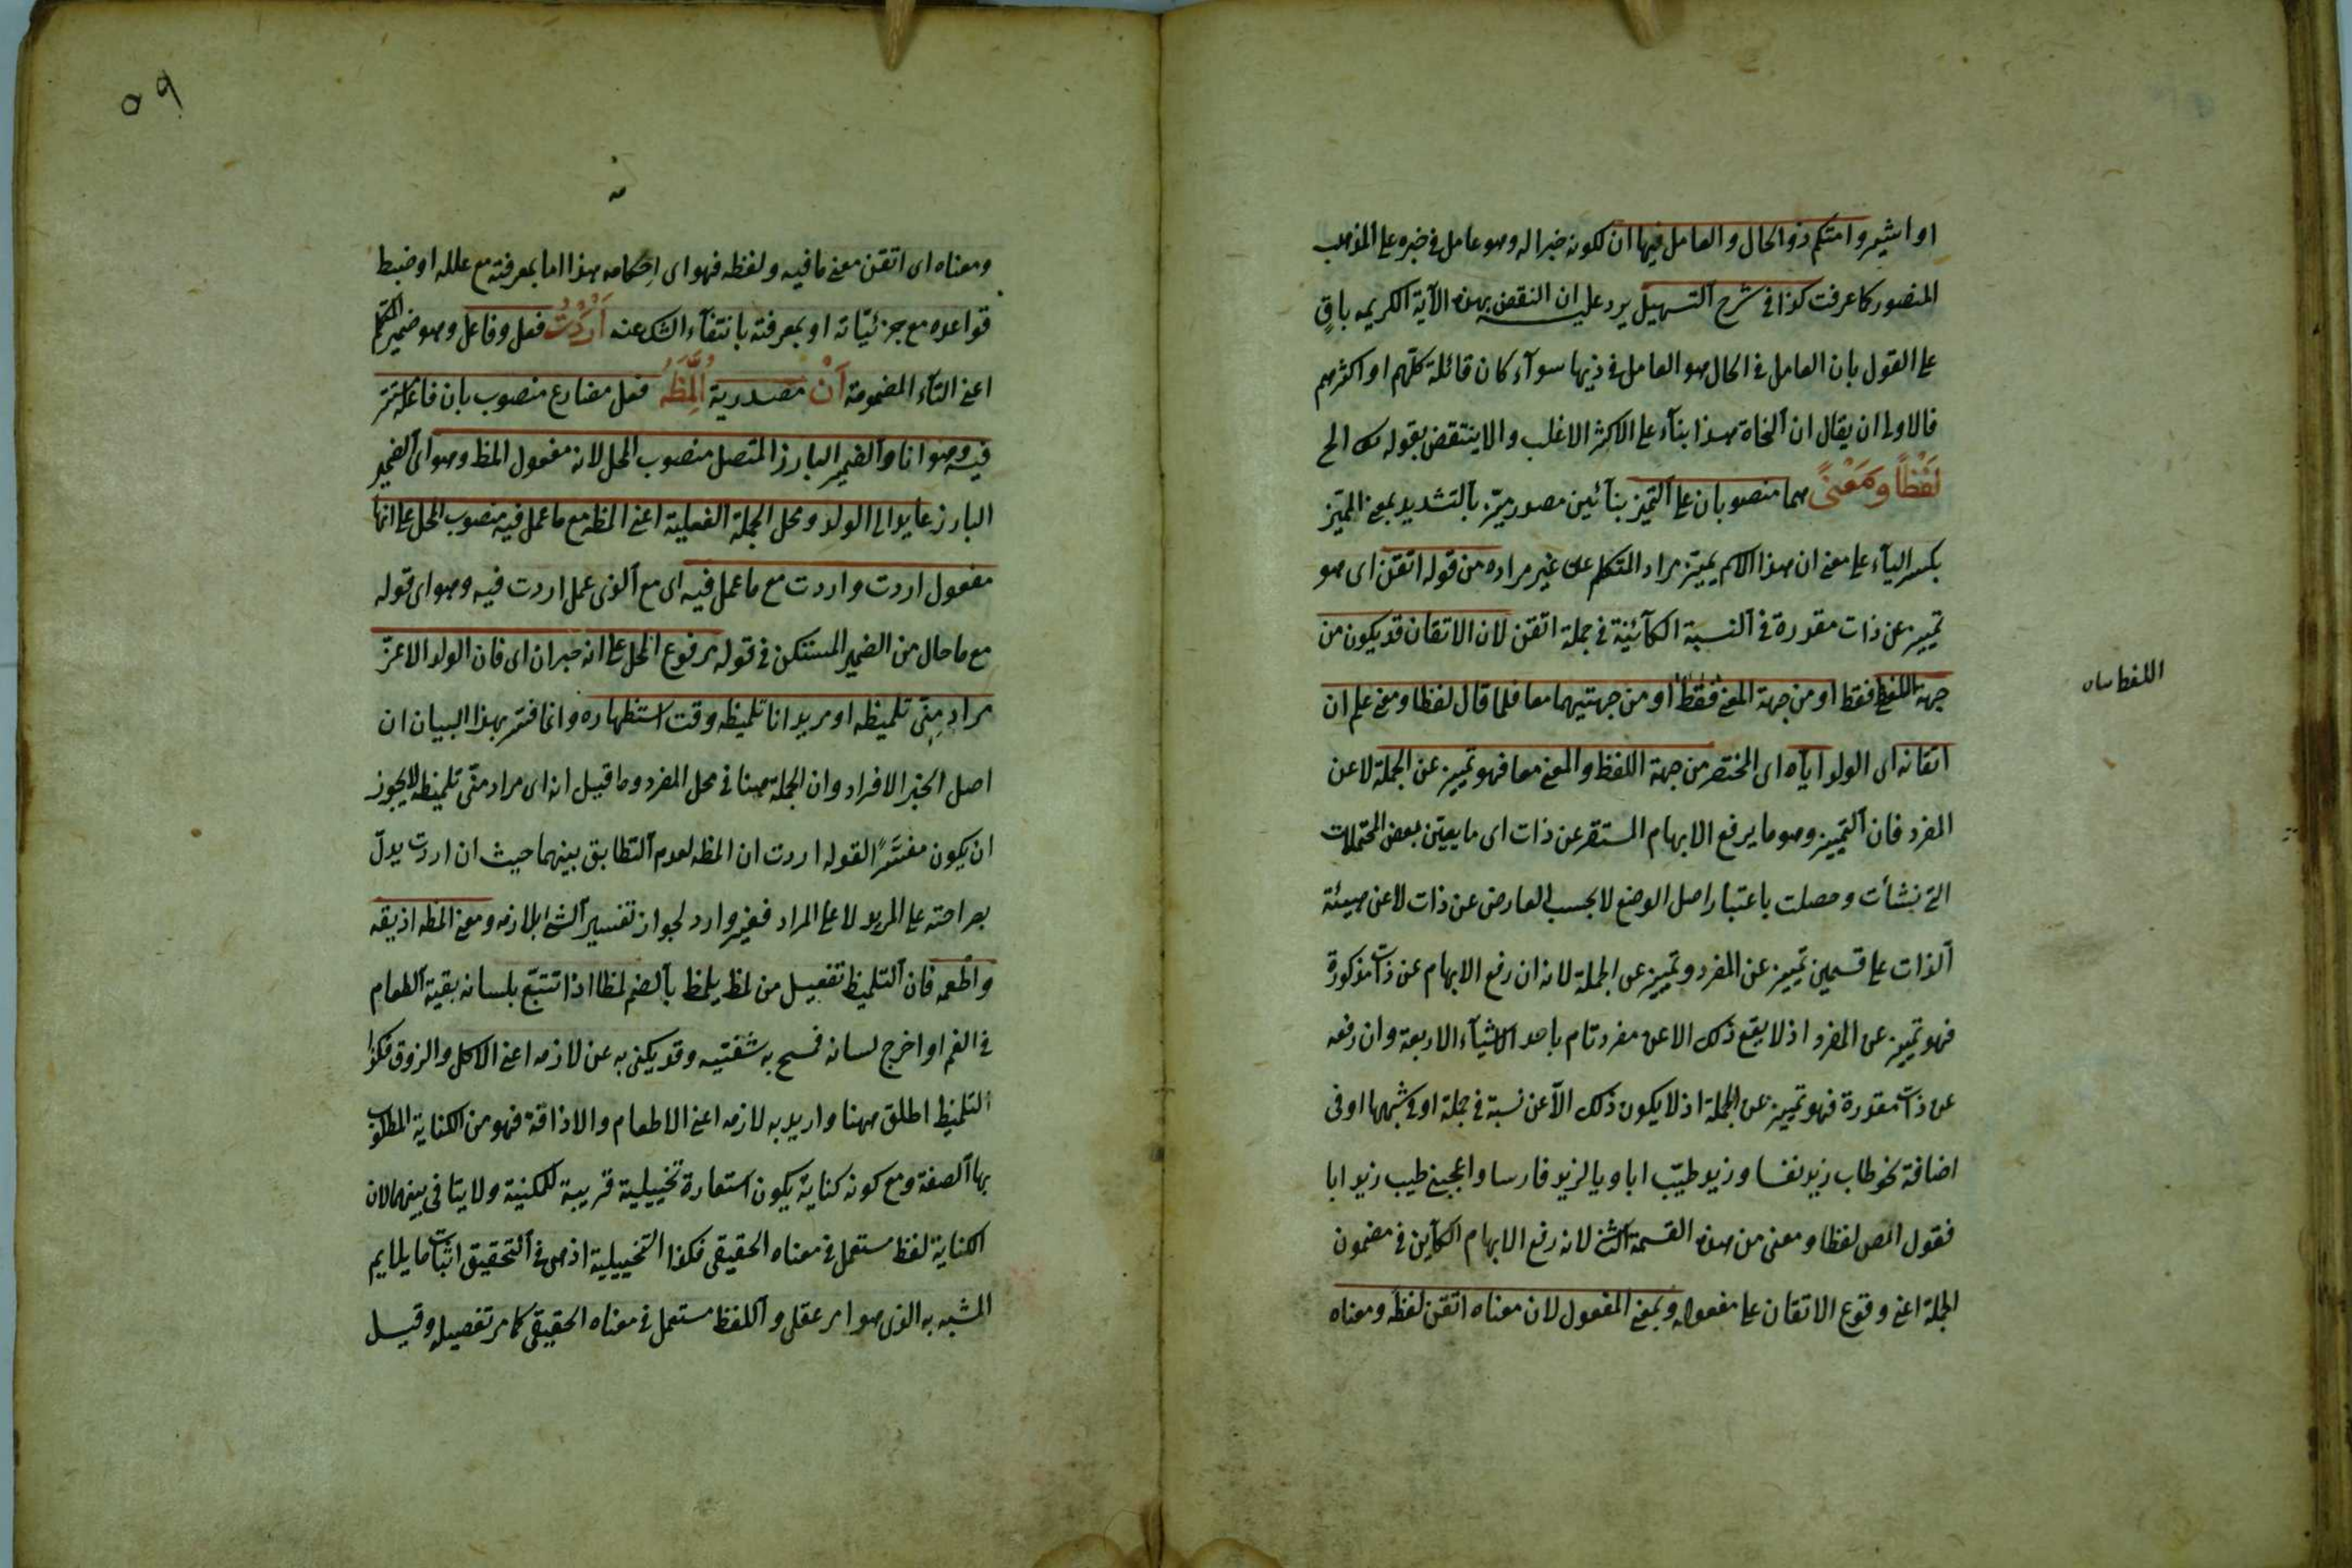 او اشير وامتكم ذو الحال والعامل فيها ان لكونه خبرا له وهو عامل في خبره على المذهب
المنصور كما عرفت كذا في شرح التسهيل يرد عليه ان النقض بهذه الآية الكريمه باقٍ
على القول بان العامل في الحال هو العامل في ذيها سوآء كان قائله كلّهم او اكثرهم
فالاولى ان يقال ان النحاة هذا بنآء على الاكثر الاغلب والا ينتقض بقوله الخ
لَفْظًا وَمَعْنىً هما منصوبان على التميز بنآئين مصدر ميّز بالتشديد بمعنى المميّز
بكسر اليآء على معنى ان هذا الاسم يميّز مراد المتكلم عن غير مراده من قوله اتقن اى هو
تمييز عن ذات مقدرة في النسبة الكآئينة في جملة اتقن لان الاتقان قد يكون من
جهة اللفظ فقط او من جهة المعنى فقط او من جهتيهما معا فلما قال لفظا ومعنى علم ان
اللفظ
اتقانه اى الولد اياه اى المختصر من جهة اللفظ والمعنى معا فهو تمييز عن الجملة لا عن
المفرد فان التمييز وهو ما يرفع الابهام المستقر عن ذات اى ما يعيّن بعض المحتملات
التى نشأت وحصلت باعتبار اصل الوضع لا بحسب العارض عن ذات لا عن هيئة
الذات على قسمين تمييز عن المفرد وتمييز عن الجملة لانه ان رفع الابهام عن ذات مذكورة
فهو تمييز عن المفرد اذ لا يقع ذلك الا عن مفرد تام باحد الاشيآء الاربعة وان رفعه
عن ذات مقدرة فهو تمييز عن الجملة اذ لا يكون ذلك الا عن نسبة في جملة او في شبهها او في
اضافة نحو طاب زيد نفسا وزيد طيّب ابا ويا لزيد فارسا واعجبنى طيب زيد ابا
فقول المص لفظا ومعنى من هذه القسمة لانه رفع الابهام الكآين في مضمون
الجملة اعنى وقوع الاتقان على مفعوله وبمعنى المفعول لان معناه اتقن لفظه ومعناه
٥٩
ومعناه اى اتقن معنى ما فيه ولفظه فهو اى احكامه هذا اما بمعرفته مع علله او ضبط
قواعده مع جزئيّاته او بمعرفته بانتفآء الشك عنه اَرَدْتُ فعل وفاعل وهو ضمير المتكلم
اعنى التآء المضمومة اَنْ مصدرية اُلَمِّظَهُ فعل مضارع منصوب بان فاعله مستتر
فيه وهو انا والضمير البارز المتصل منصوب المحل لانه مفعول المظ وهو اى الضمير
البارز عايد الى الولد ومحل الجملة الفعلية اعنى المظه مع ما عمل فيه منصوب المحل على انها
مفعول اردت واردت مع ما عمل فيه اى مع الذى عمل اردت فيه وهو اى قوله
مع ما حال من الضمير المستكن في قوله مرفوع المحل على انه خبر ان اى فان الولد الاعزّ
مراد مِنّى تلميظه او مريد انا تلميظه وقت استظهاره وانما فسّر بهذا البيان ان
اصل الخبر الافراد وان الجملة ههنا في محل المفرد وما قيل انه اى مراد منّى تلميظه لا يجوز
ان يكون مفسّرا لقوله اردت ان المظه لعدم التطابق بينهما حيث ان اردت يدلّ
بصراحته على المريد لا على المراد فغير وارد لجواز تفسير الشئ بلازمه ومعنى المظه اذيقه
واطعمه فان التلميظ تفعيل من لمظ يلمظ بالضم لمظا اذا تتبّع بلسانه بقية الطعام
في الفم او اخرج لسانه فمسح به شفتيه وقد يكنى به عن لازمه اعنى الاكل والزوق فكذا
التلميظ اطلق ههنا واريد به لازمه اعنى الاطعام والاذاقة فهو من الكناية المطلوب
بها الصفة ومع كونه كناية يكون استعارة تخييلية قريبة للمكنية ولا يتنافى بينهما لان
الكناية لفظ مستعمل في معناه الحقيقى فكذا التخييلية اذ هى في التحقيق اثبات ما يلايم
المشبه به الذى هو امر عقلى واللفظ مستعمل في معناه الحقيقى كما مر تفصيله وقيل